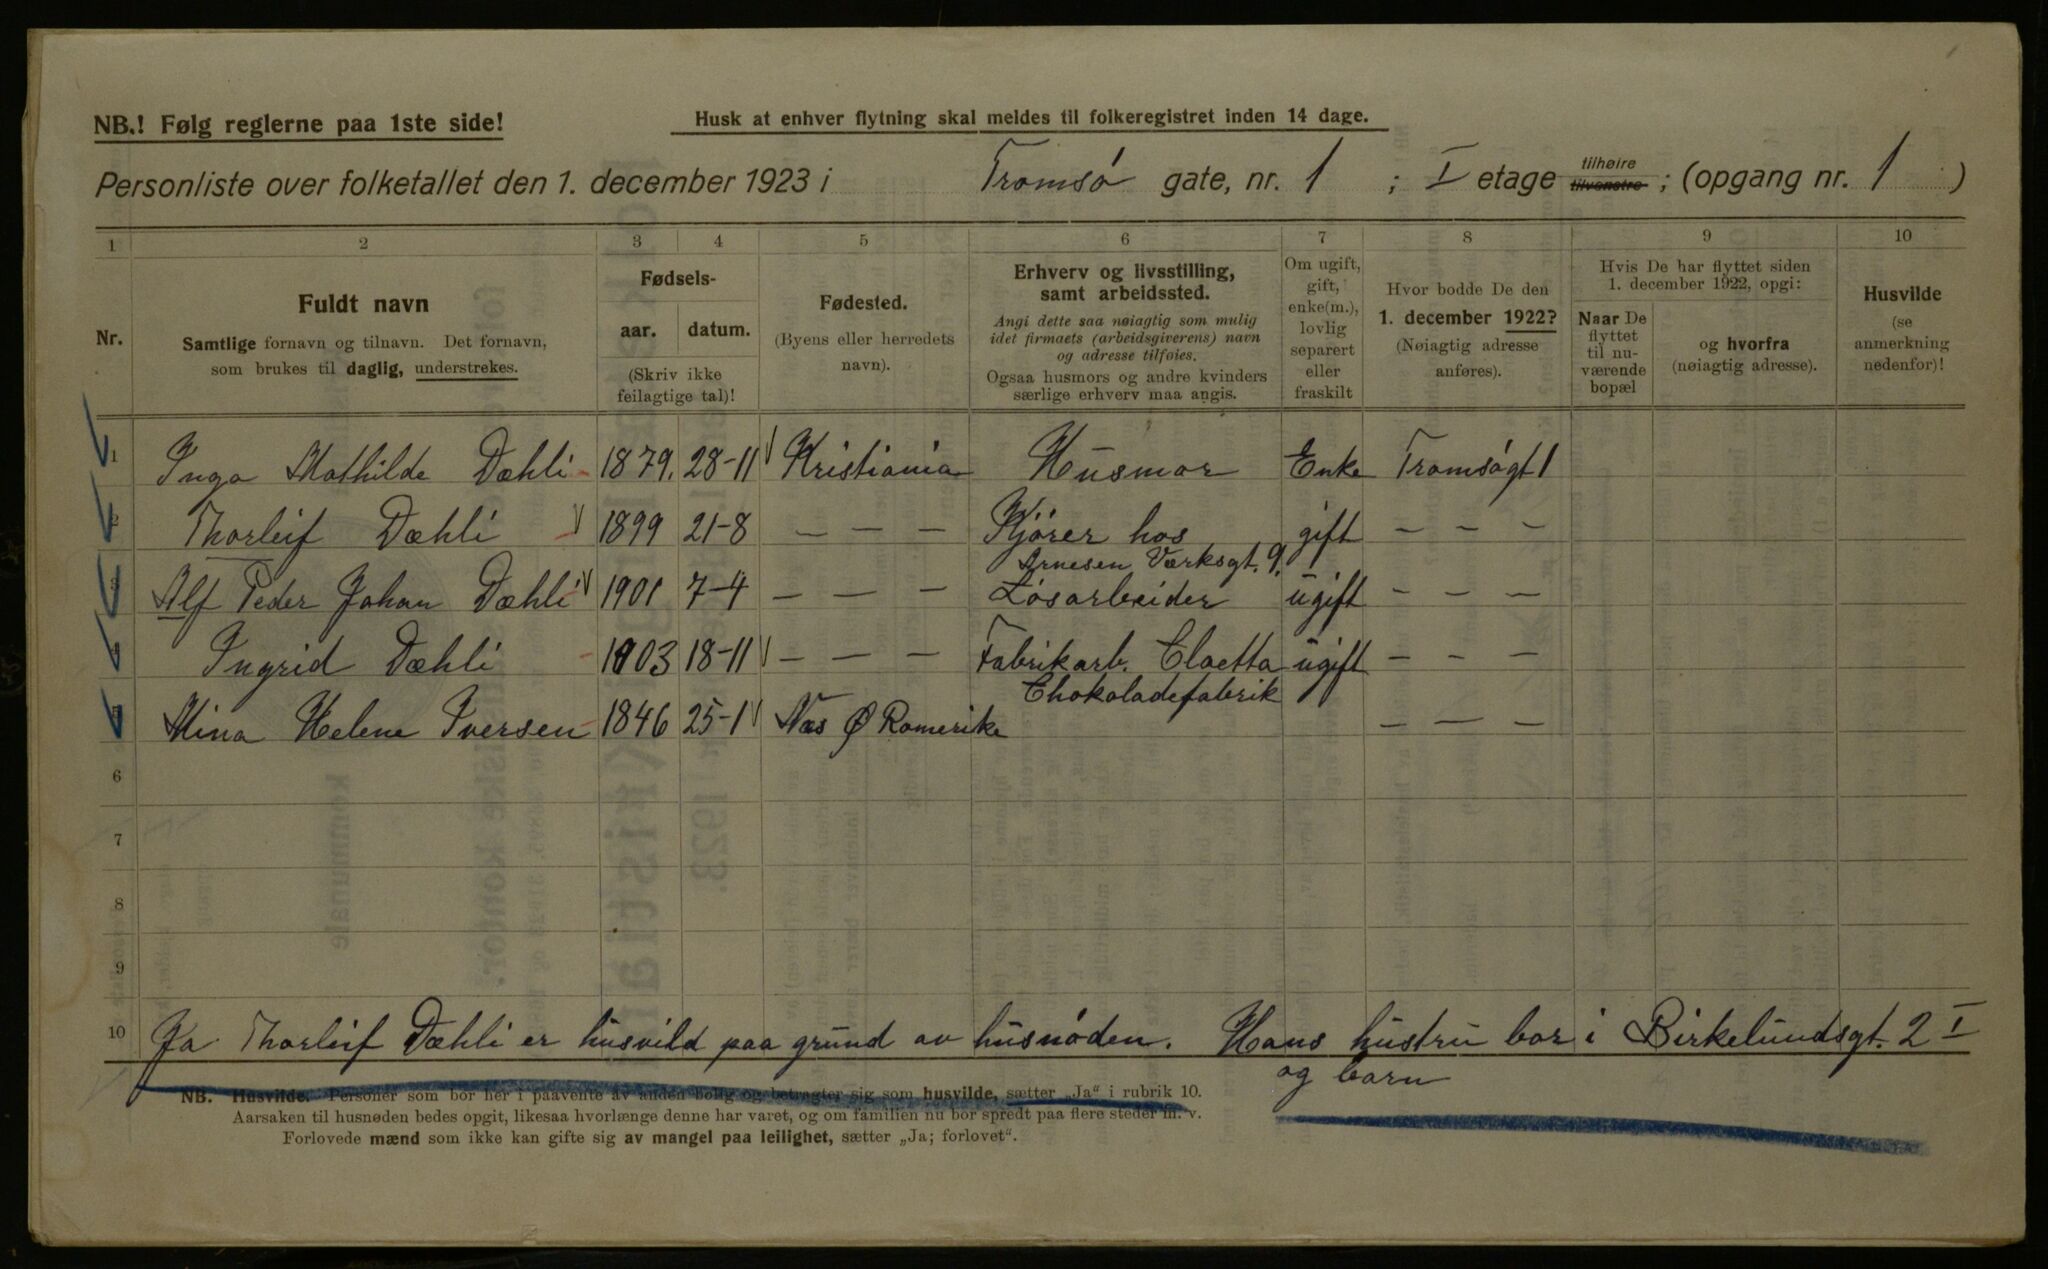 NB.! Følg reglerne paa 1ste side!
Husk at enhver flytning skal meldes til folkeregistret inden 14 dage.
Personliste over folketallet den 1. december 1923 i Tromsø gate, nr. 1 ; I etage tilhøire tilvenstre ; (opgang nr. 1 )
1 2 3 4 5 6 7 8 9 10
Nr.
Fuldt navn
Samtlige fornavn og tilnavn. Det fornavn,
som brukes til daglig, understrekes.
Fødsels-
aar. datum.
(Skriv ikke
feilagtige tal)!
Fødested.
(Byens eller herredets
navn).
Erhverv og livsstilling,
samt arbeidssted.
Angi dette saa nøiagtig som mulig
idet firmaets (arbeidsgiverens) navn
og adresse tilføies.
Ogsaa husmors og andre kvinders
særlige erhverv maa angis.
Om ugift,
gift,
enke(m.),
lovlig
separert
eller
fraskilt
Hvor bodde De den
1. december 1922?
(Nøiagtig adresse
anføres).
Hvis De har flyttet siden
1. december 1922, opgi:
Naar De
flyttet
til nu-
værende
bopæl
og hvorfra
(nøiagtig adresse).
Husvilde
(se
anmerkning
nedenfor)!
1 Inga Mathilde Dæhli 1879. 28-11 Kristiania Husmor Enke Tromsøgt 1
2 Thorleif Dæhli 1899 21-8 — — — Kjører hos gift — — —
Arnesen Værksgt. 9.
3 Alf Peder Johan Dæhli 1901 7-4 — — — Løsarbeider ugift — — —
4 Ingrid Dæhli 1903 18-11 — — — Fabrikarb. Cloetta ugift — — —
Chokoladefabrik
5 Mina Helene Iversen 1846 25-1 Næs Ø Romerike — — —
6
7
8
9
10 Ja Thorleif Dæhli er husvild paa grund av husnøden. Hans hustru bor i Birkelundsgt. 2 I
og barn
NB. Husvilde. Personer som bor her i paavente av anden bolig og betragter sig som husvilde, sætter „Ja“ i rubrik 10.
Aarsaken til husnøden bedes opgit, likesaa hvorlænge denne har varet, og om familien nu bor spredt paa flere steder m. v.
Forlovede mænd som ikke kan gifte sig av mangel paa leilighet, sætter „Ja; forlovet“.